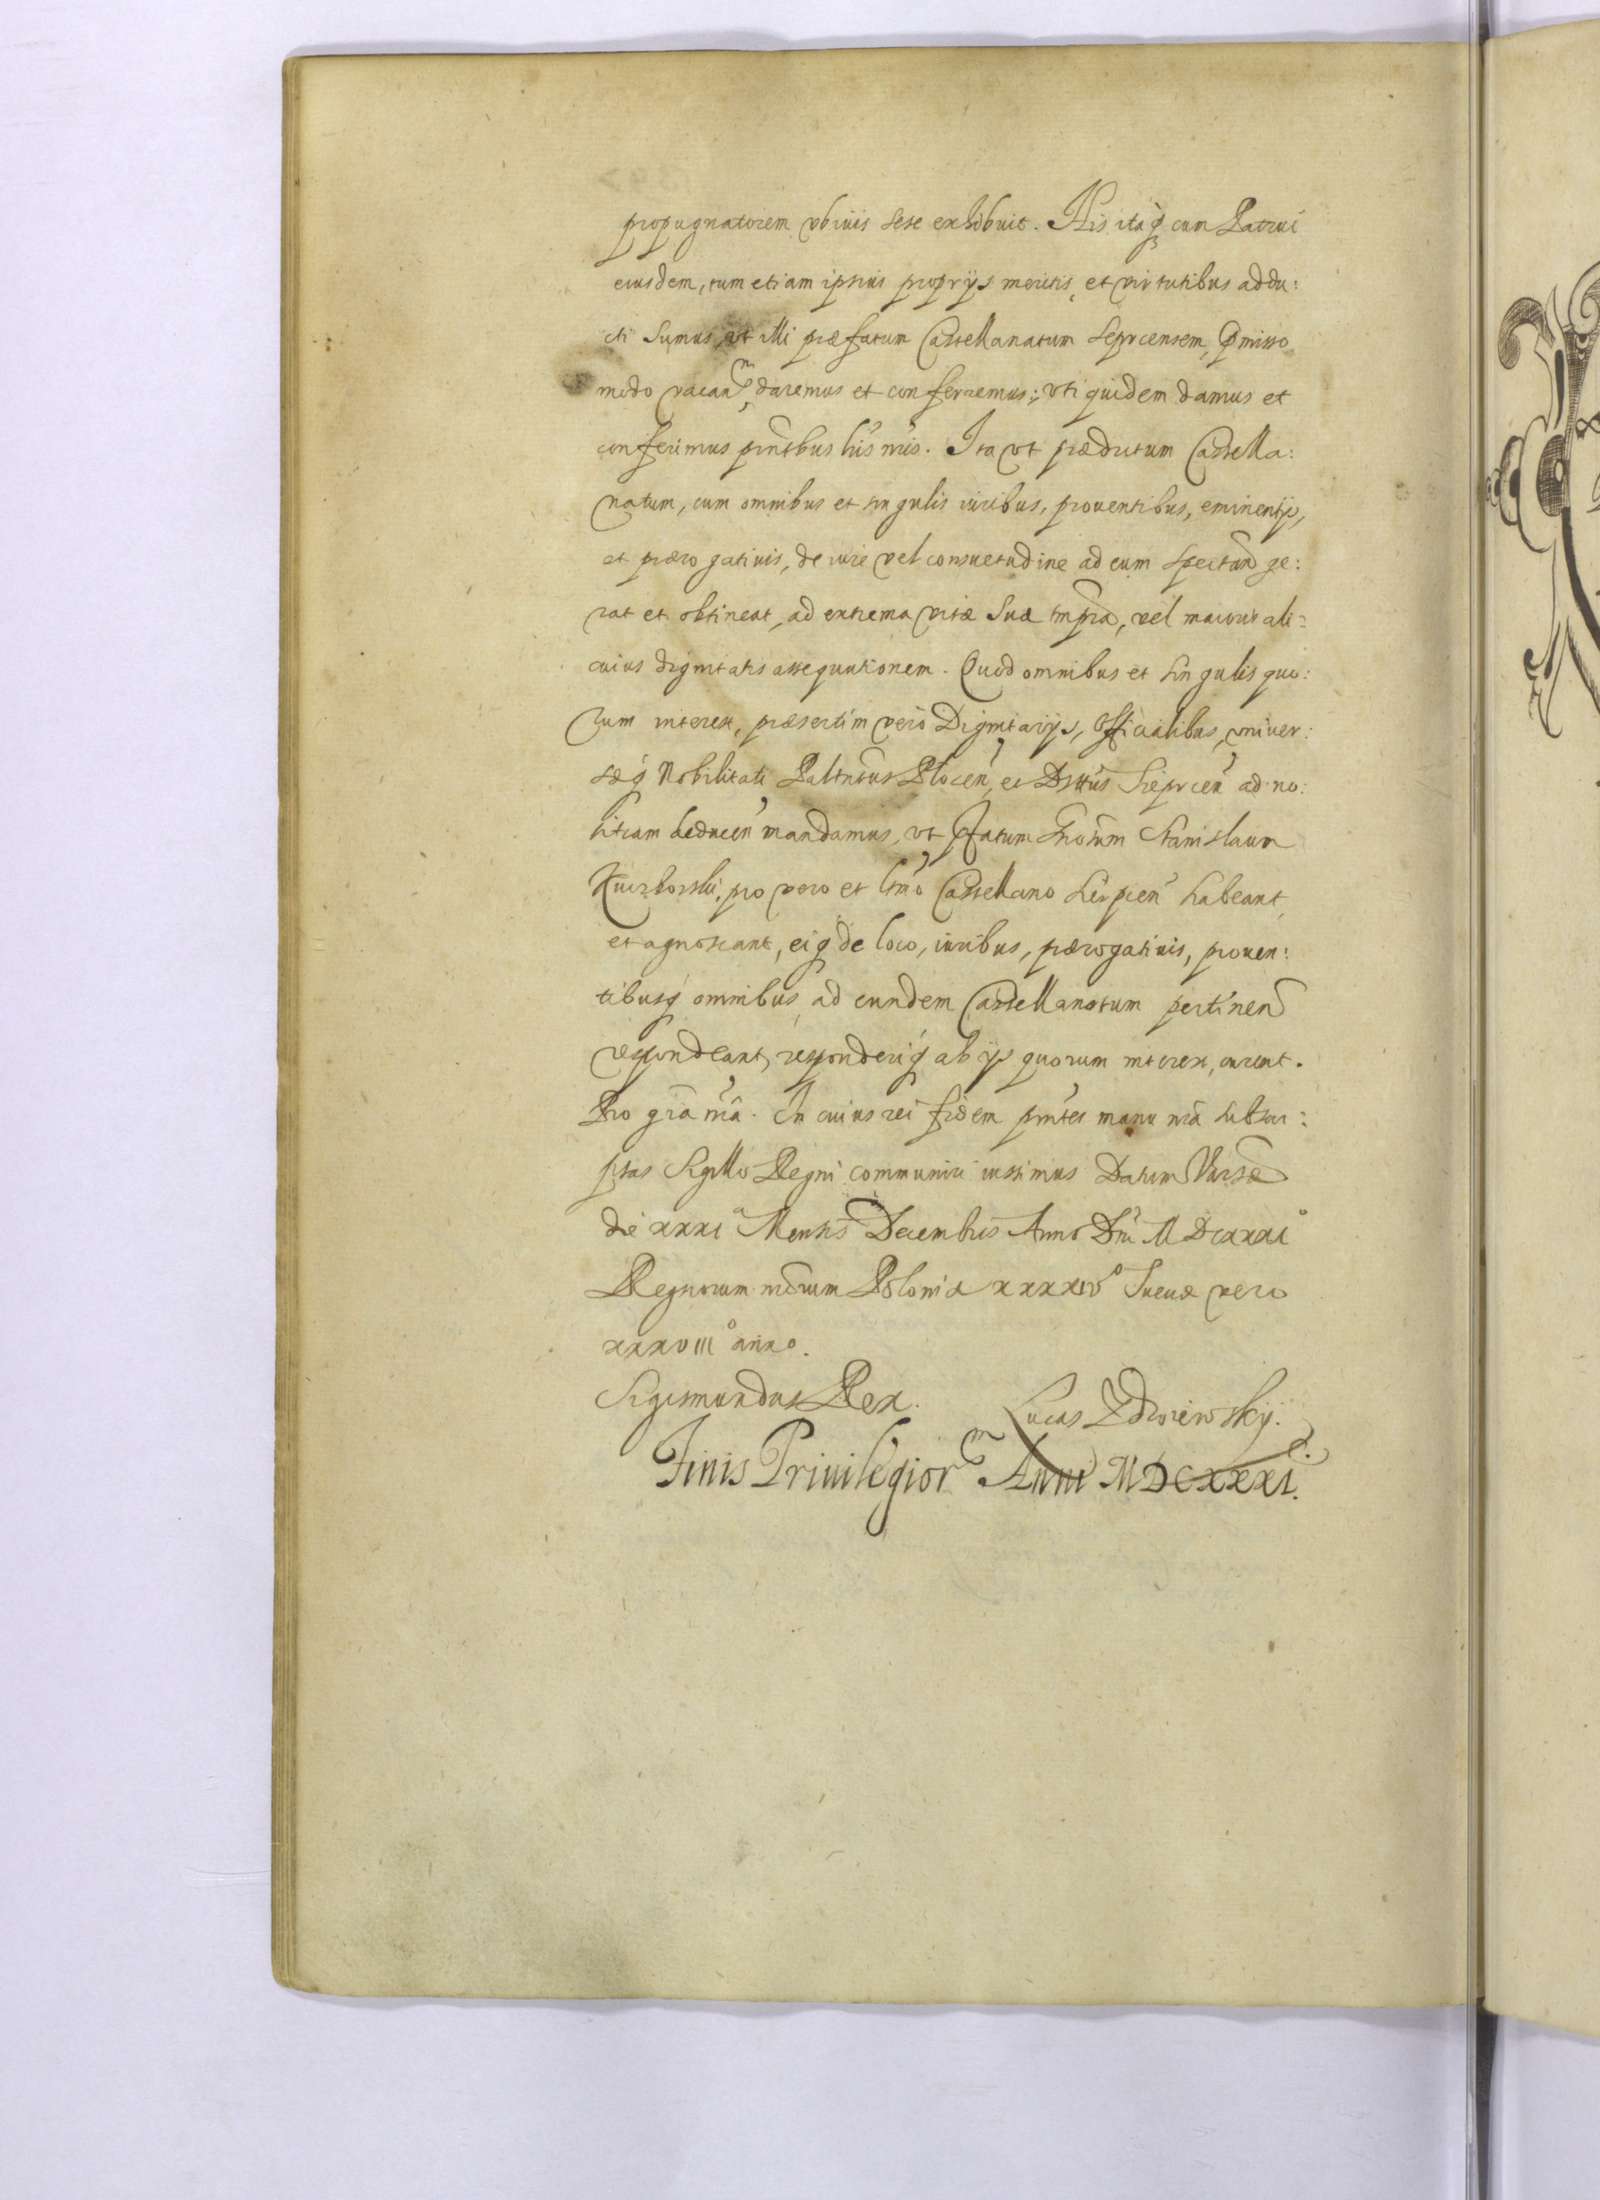 propugnatorem vbiuis sese exhibuit. His itaq; cum Patrui
eiusdem, tum etiam ipsius proprijs meritis, et virtutibus addu:
cti Sumus, vt illi præfatum Castellanatum Seprcensem, pmisso
modo vacan~m, daremus et conferremus; vti quidem damus et
conferimus pntibus lris nris. Ita vt prædictum Castella:
natum, cum omnibus et singulis iuribus, prouentibus, eminentijs,
et prærogatiuis, de iure vel consuetudine ad eum spectan ge:
rat et obtineat, ad extrema vitæ suæ tmpra, vel maioris ali:
cuius dignitatis assequutionem. Quod omnibus et singulis quo:
rum interest, præsertim vero Dignitarijs, Officialibus, vniuer:
sæq Nobilitati Paltntus Plocen, et Dsttus Sieprcen ad no:
titiam deducen mandamus, vt pfatum Gnosum Stanislaum
Kuczborski, pro vero et ltmo Castellano Sieprcen habeant
et agnoscant, eiq de loco, iuribus, prærogatiuis, prouen:
tibusq omnibus, ad eundem Castellanatum pertinen
respondeant, responderiq ab ijs quorum interest, curent.
Pro gra nra. In cuius rei fidem pntes manu nra subscri:
ptas Sigillo Regni communiri iussimus Datum Varsæ
die xxxi a Mensis Decembris Anno Dni MDCXXXI o
Regnorum nrorum Poloniæ xxxxiv o Sueciæ vero
xxxviii o anno.
Sigismundus Rex. Lucas Zdroiewskij.
Finis Priuilegior~m Anni MDCXXXI.